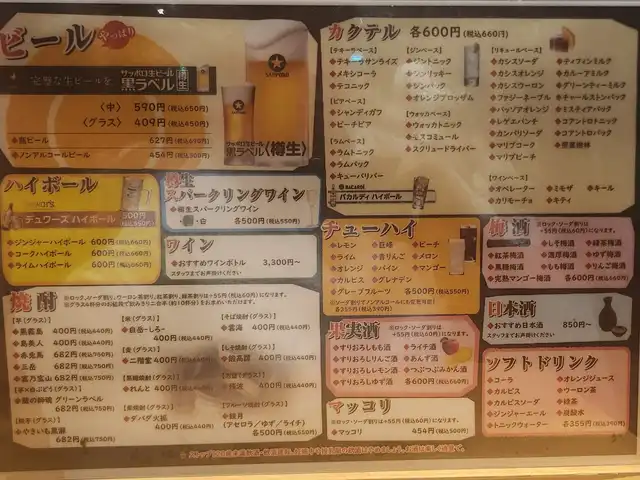 ビール
やっぱり
完璧な生ビールを
サッポロ生ビール
黒ラベル
樽生
〈中〉 590円(税込650円)
〈グラス〉 409円(税込450円)
◆瓶ビール 627円(税込690円)
◆ノンアルコールビール 454円(税込500円)
SAPPORO
サッポロ生ビール
黒ラベル〈樽生〉
ハイボール
デュワーズ ハイボール 500円
(税込550円)
◆ジンジャーハイボール 600円(税込660円)
◆コークハイボール 600円(税込660円)
◆ライムハイボール 600円(税込660円)
樽生
スパークリングワイン
◆樽生スパークリングワイン
・白 各500円(税込550円)
ワイン
◆おすすめワインボトル 3,300円〜
スタッフまでお声掛けください
焼酎
【芋(グラス)】
◆黒霧島 400円(税込440円)
◆島美人 400円(税込440円)
◆赤兎馬 682円(税込750円)
◆三岳 682円(税込750円)
◆富乃宝山 682円(税込750円)
グリーンラベル
682円(税込750円)
◆やきいも黒瀬
682円(税込750円)
【米(グラス)】
◆白岳・しろ・
400円(税込440円)
【麦(グラス)】
◆二階堂 400円(税込440円)
【黒糖焼酎(グラス)】
◆れんと 400円(税込440円)
◆ダバダ火振
400円(税込440円)
【そば焼酎(グラス)】
◆雲海 400円(税込440円)
【しそ焼酎(グラス)】
◆鍛高譚 400円(税込440円)
◆残波 400円(税込440円)
【フルーツ焼酎(グラス)】
(アセロラ／ゆず／ライチ)
各500円(税込550円)
カクテル 各600円(税込660円)
【テキーラベース】
◆テキーラサンライズ
◆メキシコーラ
◆テコニック
【ビアベース】
◆シャンディガフ
◆ピーチビア
【ラムベース】
◆ラムトニック
◆ラムバック
◆キューバリバー
【ジンベース】
◆ジントニック
◆ジンリッキー
◆ジンバック
◆オレンジブロッサム
【ウォッカベース】
◆ウォッカトニック
◆モスコミュール
◆スクリュードライバー
【リキュールベース】
◆カシスソーダ
◆カシスオレンジ
◆カシスウーロン
◆ファジーネーブル
◆パッソアオレンジ
◆レゲエパンチ
◆カンパリソーダ
◆マリブコーク
◆マリブピーチ
◆ティフィンミルク
◆カルーアミルク
◆グリーンティーミルク
◆チャールストンバック
◆ミスティアバック
◆コアントロニック
◆コアントロバック
◆照葉樹林
【ワインベース】
◆オペレーター ◆ミモザ ◆キール
◆カリモーチョ ◆キティ
BACARDI
バカルディ ハイボール
チューハイ
◆レモン ◆巨峰 ◆ピーチ
◆ライム ◆青りんご ◆メロン
◆オレンジ ◆パイン ◆マンゴー
◆カルピス ◆グレナデン
◆グレープフルーツ 各500円(税込550円)
※全てノンアルコールにも変更可能！
梅酒
※ロック・ソーダ割りは
+55円(税込60円)になります。
◆紅茶梅酒 ◆しそ梅酒 ◆緑茶梅酒
◆濃厚梅酒 ◆ゆず梅酒
◆黒糖梅酒 ◆もも梅酒 ◆りんご梅酒
◆完熟マンゴー梅酒 各600円(税込660円)
果実酒
※ロック・ソーダ割りは
+55円(税込60円)になります。
◆すりおろしもも酒 ◆ライチ酒
◆すりおろしりんご酒 ◆あんず酒
◆すりおろしレモン酒 ◆つぶつぶみかん酒
◆すりおろしゆず酒 各600円(税込660円)
日本酒
◆おすすめ日本酒 850円〜
スタッフまでお声掛けください
マッコリ
※ロック・ソーダ割りは
+55円(税込60円)になります。
◆マッコリ 454円(税込500円)
ソフトドリンク
◆コーラ ◆オレンジジュース
◆カルピス ◆ウーロン茶
◆カルピスソーダ ◆緑茶
◆ジンジャーエール ◆炭酸水
◆トニックウォーター 各355円(税込390円)